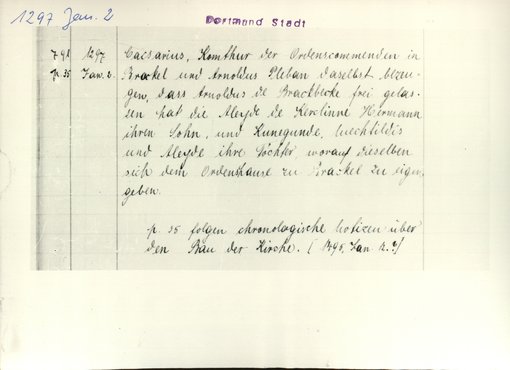 1297 Jan. 2
Dortmund Stadt
1297 Caesarius, Komthur der Ordenscommenden in
p. 35 Jan. 2. Brackel und Arnoldus Pleban daselbst bezeu-
gen, dass Arnoldus de Brackbecke frei gelas-
sen hat die Aleyde de Kerclinne Hermann
ihren Sohn, und Kunegunde, Mechtildis
und Aleyde ihre Töchter, worauf dieselben
sich dem Ordenshause zu Brackel zu eigen
geben.
p. 35 folgen chronologische Notizen über
den Bau der Kirche. ( Jan. 2. ?)